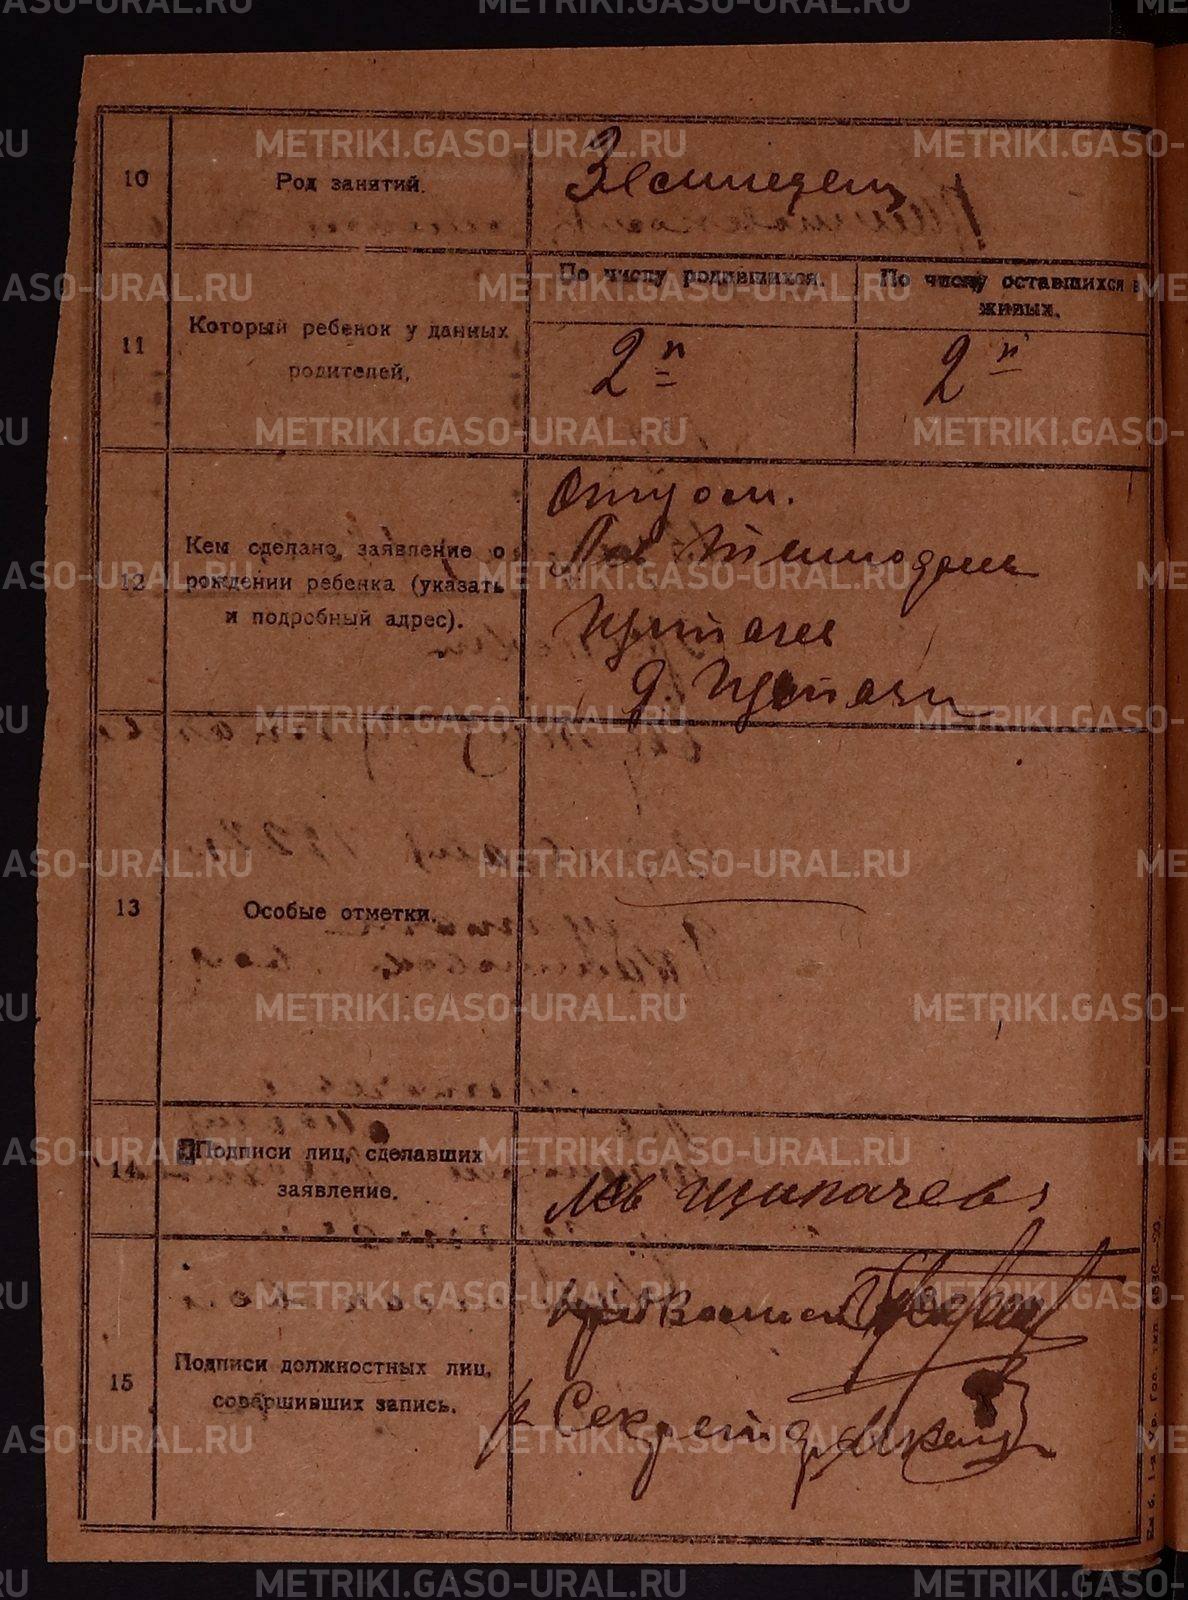 10
Род занятий.
Земледелец
11
Который ребенок у данных
родителей.
По числу родившихся.
По числу оставшихся в
живых.
2й
2й
12
Кем сделано заявление о
рождении ребенка (указать
и подробный адрес).
Отцом.
Лев
Щипачев
д. Щипачи
13
Особые отметки.
14
Подписи лиц, сделавших
заявление.
Лев Щипачевъ
15
Подписи должностных лиц,
совершивших запись.
Секретарь
METRIKI.GASO-URAL.RU